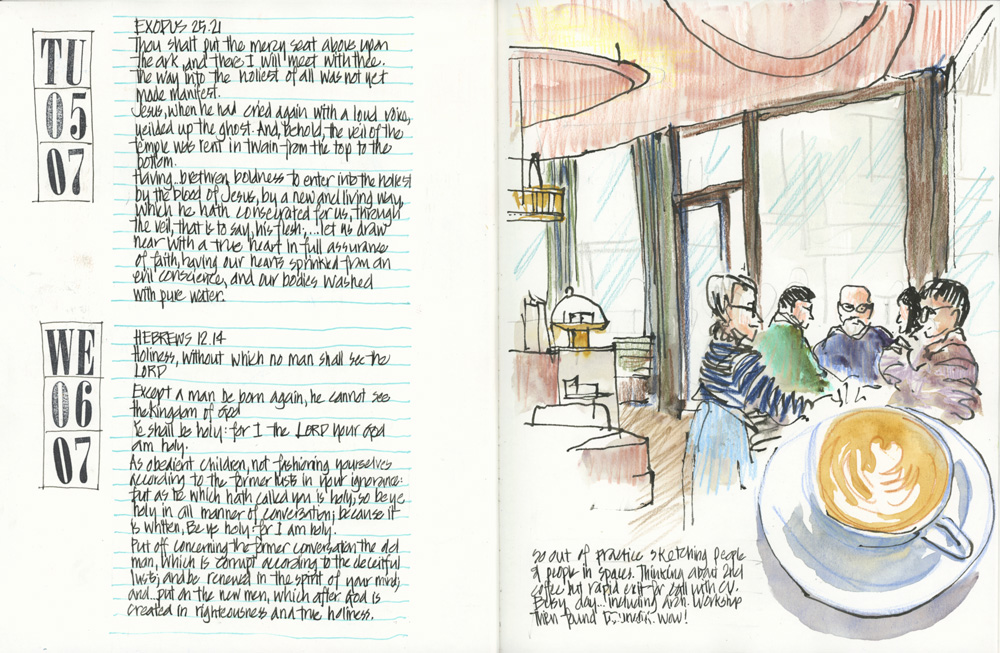 TU
05
07
EXODUS 25.21
Thou shalt put the mercy seat above upon
the ark, and there I will meet with thee.
The way into the holiest of all was not yet
made manifest.
Jesus, when he had cried again with a loud voice,
yeilded up the ghost. And, behold, the veil of the
temple was rent in twain from the top to the
bottom.
Having, brethren, boldness to enter into the holiest
by the blood of Jesus, by a new and living way,
which he hath consecrated for us, through
the veil, that is to say, his flesh;...let us draw
near with a true heart in full assurance
of faith, having our hearts sprinkled from an
evil conscience, and our bodies washed
with pure water.
WE
06
07
HEBREWS 12.14
Holiness, without which no man shall see the
LORD
Except a man be born again, he cannot see
the kingdom of God
Ye shall be holy: for I the LORD your God
am holy.
As obedient children, not fashioning yourselves
according to the former lusts in your ignorance:
but as he which hath called you is holy, so be ye
holy in all manner of conversation; because it
is written, Be ye holy: for I am holy.
Put off concerning the former conversation the old
man, which is corrupt according to the deceitful
lusts; and be renewed in the spirit of your mind;
and...put on the new man, which after God is
created in righteousness and true holiness.
So out of practice sketching people
& people in spaces. Thinking about 2nd
coffee but rapid exit for call with CV.
Busy day... including Arch. Workshop
Then found wow!